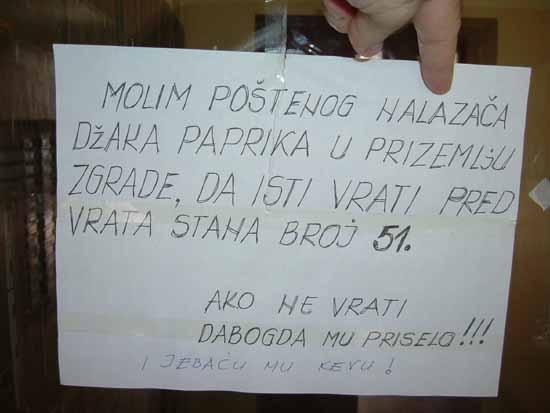 MOLIM POŠTENOG NALAZAČA
DŽAKA PAPRIKA U PRIZEMLJU
ZGRADE, DA ISTI VRATI PRED
VRATA STANA BROJ 51.
AKO NE VRATI
DABOGDA MU PRISELO!!!
I JEBAĆU MU KEVU!